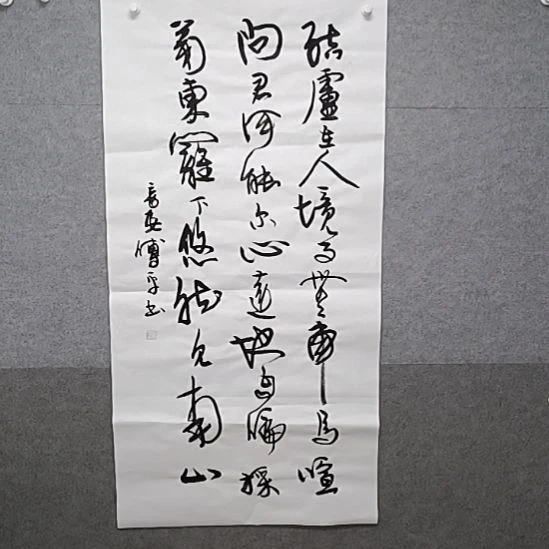 結廬在人境而無車馬喧
問君何能尔心遠地自偏採
菊東籬下悠然見南山
長安傅平书